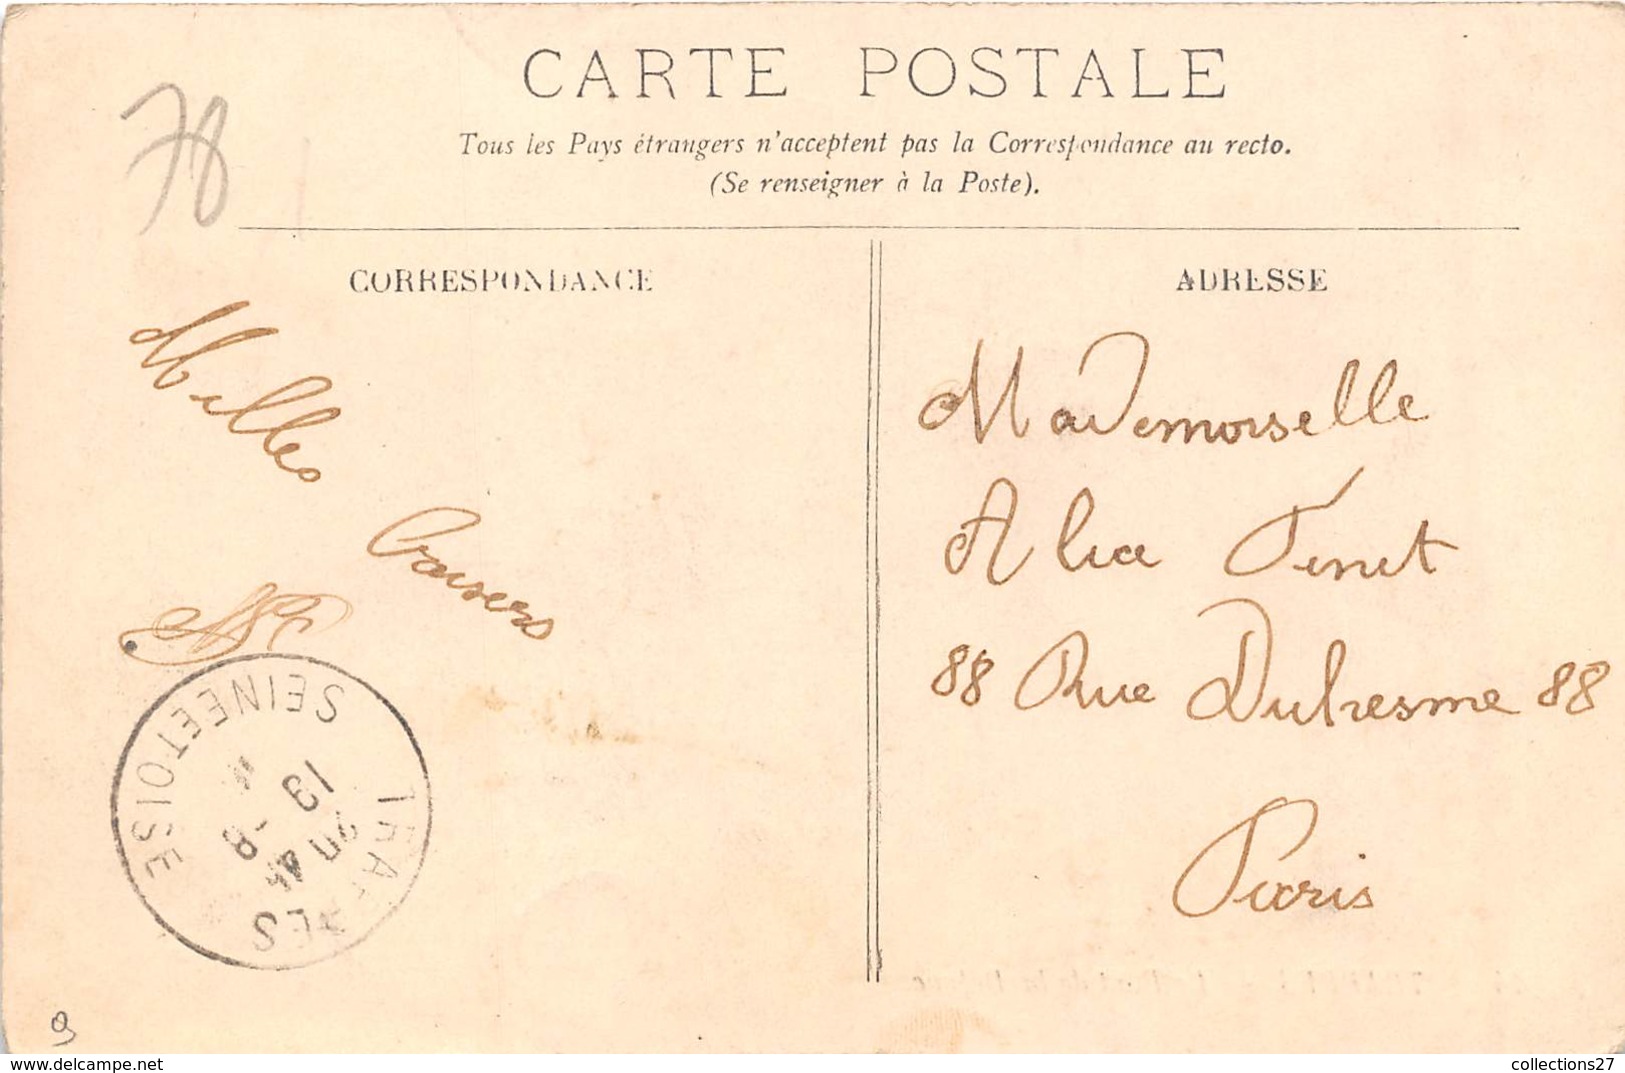 CARTE POSTALE
Tous les Pays étrangers n'acceptent pas la Correspondance au recto.
(Se renseigner à la Poste).
78
CORRESPONDANCE
Milles
Baisers
ADRESSE
Mademoiselle
Alice Tinet
88 Rue Dufresme 88
Paris
TRAPPES
SEINE ET OISE
19 -8
delcampe.net
collections27